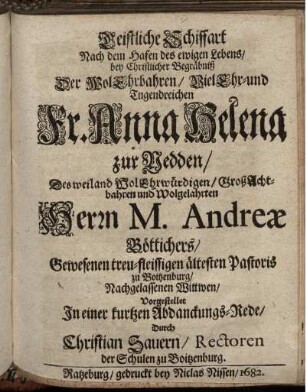 Geistliche Schiffart
Nach dem Hafen des ewigen Lebens/
bey Christlicher Begräbnüß
Der WolEhrbahren/ VielEhr-und
Tugendreichen
Fr. Anna Helena
zur Nedden/
Des weiland WolEhrwürdigen/ GroßAcht-
bahren und Wolgelahrten
Herrn M. Andreæ
Böttichers/
Gewesenen treu-fleissigen ältesten Pastoris
zu Boitzenburg/
Nachgelassenen Wittwen/
Vorgestellet
In einer kurtzen Abdanckungs-Rede/
Durch
Christian Sauern/ Rectoren
der Schulen zu Boitzenburg.
Ratzeburg/ gedruckt bey Niclas Nissen/ 1682.